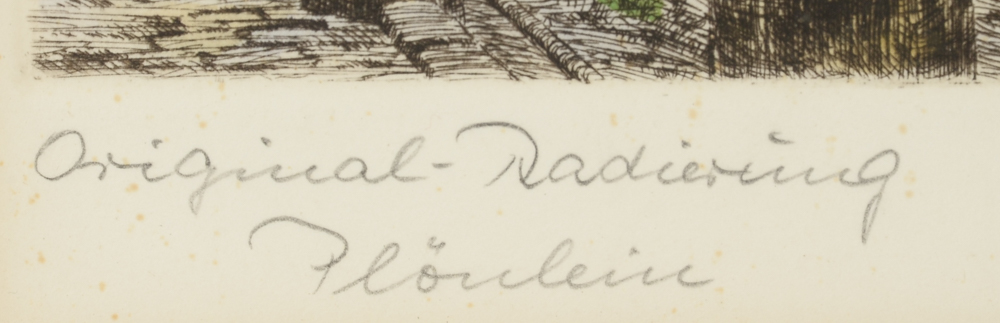 Original-Radierung
Plönlein